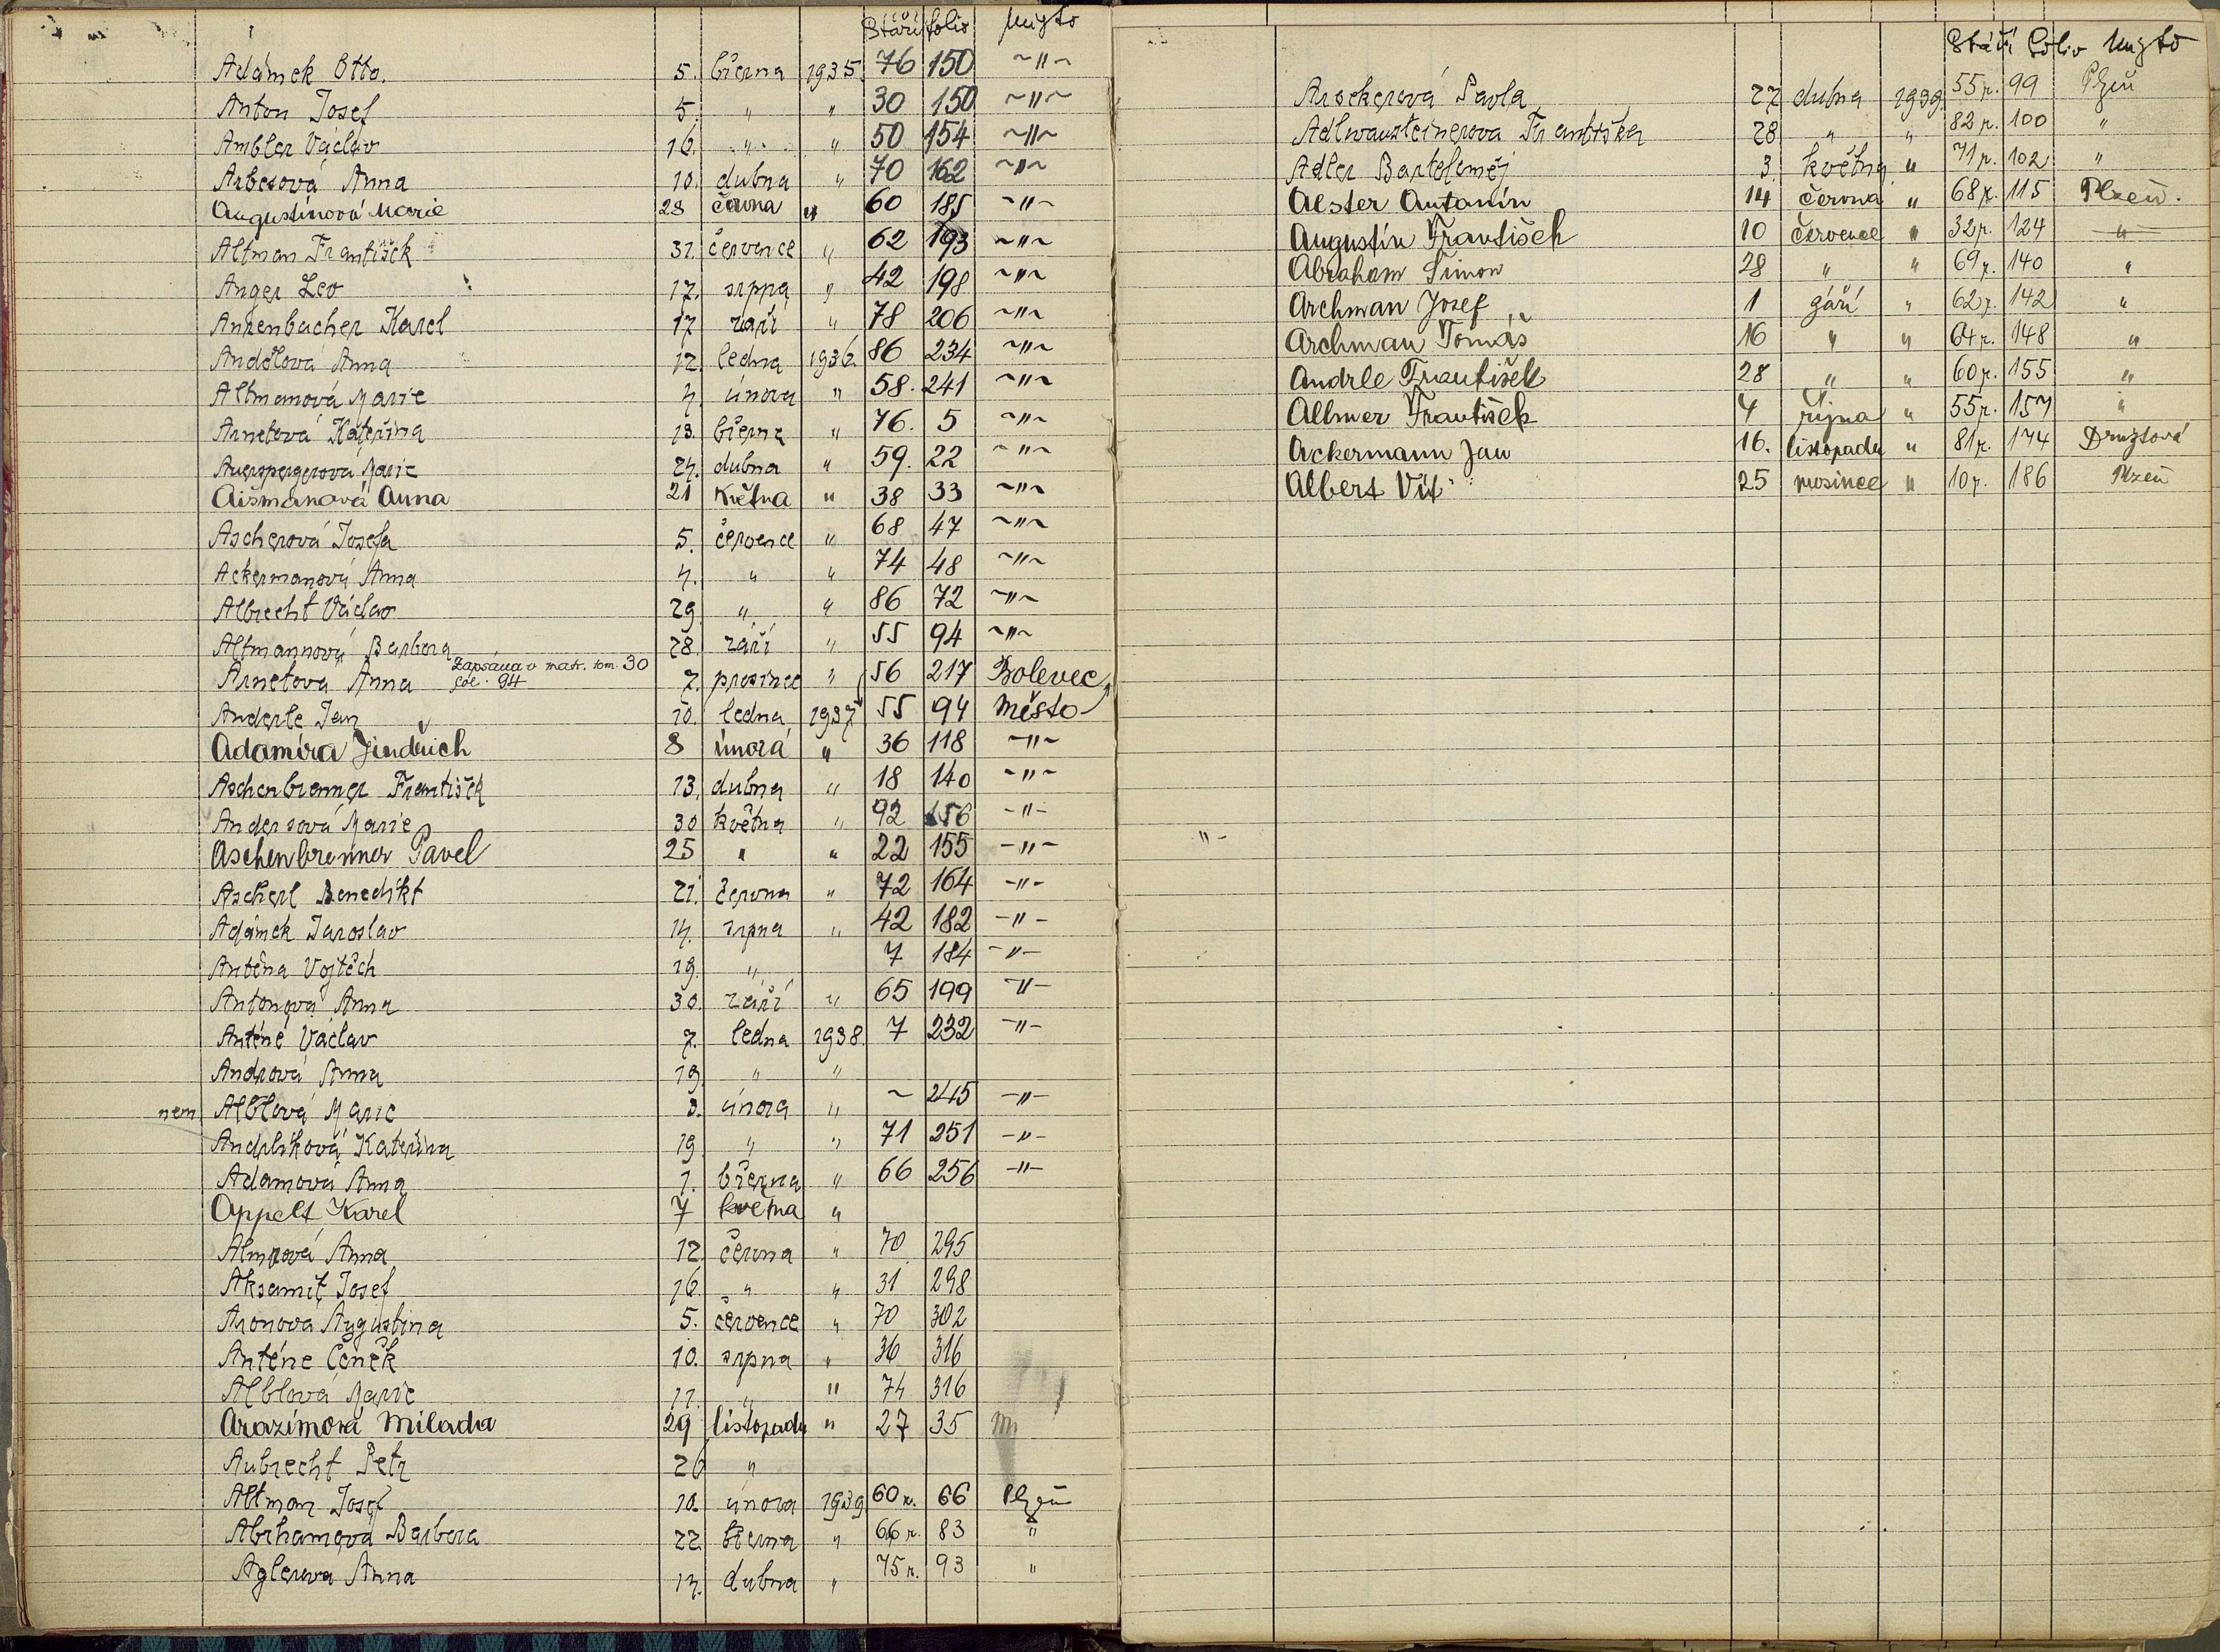 Stáří folio Místo
Adámek Otto. 5. března 1935 76 150 ~"~
Anton Josef 5. " " 30 150 ~"~
Ambler Václav 16. " " 50 154 ~"~
Arbesová Anna 10. dubna " 70 162 ~"~
Augustinová Marie 28 června " 60 185 ~"~
Altman František 31. července " 62 193 ~"~
Anger Leo 17. srpna " 42 198 ~"~
Annenbacher Karel 17 září " 78 206 ~"~
Andělová Anna 12. ledna 1936 86 234 ~"~
Altmanová Marie 4. února " 58. 241 ~"~
Arnetová Kateřina 13. března " 76. 5 ~"~
Auerspergerová Marie 24. dubna " 59. 22 ~"~
Aišmanová Anna 21 května " 38 33 ~"~
Ascherová Josefa 5. července " 68 47 ~"~
Ackermanová Anna 4. " " 74 48 ~"~
Albrecht Václav 29 " " 86 72 ~"~
Altmannová Barbora 28. září " 55 94 ~"~
Zapsána v matr. tom. 30 fol. 94
Arnetová Anna 7. prosince " 56 217 Bolevec
Anderle Jan 10. ledna 1937 55 94 Město
Adamíra Jindřich 8 února " 36 118 ~"~
Aschenbrenner František 13. dubna " 18 140 ~"~
Andersová Marie 30 května " 92 156 -"-
Aschenbrenner Pavel 25 " " 22 155 -"-
Ascherl Benedikt 21. června " 72 164 -"-
Adámek Jaroslav 14. srpna " 42 182 -"-
Anténa Vojtěch 19. " 7 184 -"-
Antonová Anna 30. září " 65 199 -"-
Anténé Václav 7. ledna 1938. 7 232 -"-
Andrová Anna 19 " "
nem Alblová Marie 3. února " ~ 245 -"-
Andrlíková Kateřina 19 " " 71 251 -"-
Adamová Anna 1. března " 66 256 -"-
Appelt Karel 7 května "
Almrová Anna 12. června " 70 295
Aksamit Josef 16 " " 31 298
Aronová Augustina 5. července " 70 302
Anténe Čeněk 10. srpna " 36 316
Alblová Marie 11. " " 74 316
Arazímová Milada 29 listopadu " 27 35 m
Aubrecht Petr 26 "
Altman Josef 10. února 1939 60 r. 66 Plzeň
Abrhamová Barbora 22. března " 66 r. 83 "
Aglerová Anna 14. dubna " 75 r. 93 "
Stáří Folio Místo
Pavla 27 dubna 1939 55 r. 99 Plzeň
Františka 28 " " 82 r. 100 "
Adler Bartoloměj 3. května " 71 r. 102 "
Alster Antonín 14 června " 68 r. 115 Plzeň.
Augustin František 10 července " 32 r. 124 "
Abraham Šimon 28 " " 69 r. 140 "
Archman Josef 1 září " 62 r. 142 "
Archman Tomáš 16 " " 64 r. 148 "
Andrle František 28 " " 60 r. 155 "
Allmer František 4 října " 55 r. 157 "
Ackermann Jan 16. listopadu " 81 r. 174 Druztová
Albert Vít 25 prosince " 10 r. 186 Plzeň
" -